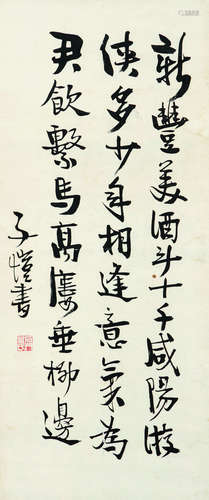 新豐美酒斗十千咸陽游
俠多少年相逢意氣為
君飲繫馬高樓垂柳邊
子愷書